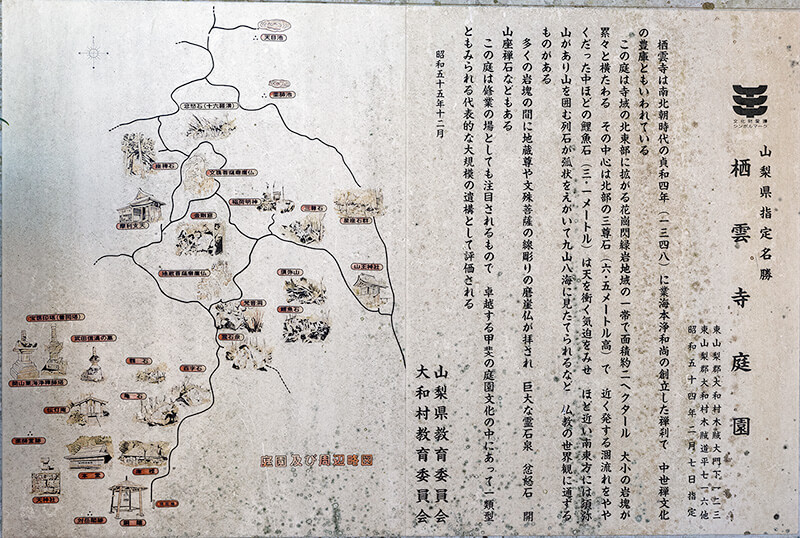 文化財愛護
シンボルマーク
山梨県指定名勝
栖雲寺庭園
東山梨郡大和村木賊大門下一二三
東山梨郡大和村木賊道平七一六他
昭和五十四年二月七日指定
栖雲寺は南北朝時代の貞和四年（一三四八）に業海本浄和尚の創立した禅刹で　中世禅文化
の豊庫ともいわれている
この庭は寺域の北東部に拡がる花崗閃緑岩地域の一帯で面積約二ヘクタール　大小の岩塊が
累々と横たわる　その中心は北部の三尊石（六・五メートル高）で　近く発する涸流れをやや
くだった中ほどの鯉魚石（三・一メートル）は天を衝く気迫をみせ　ほど近い南東方には須弥
山があり山を囲む列石が弧状をえがいて九山八海に見たてられるなど　仏教の世界観に通ずる
ものがある
多くの岩塊の間に地蔵尊や文殊菩薩の線彫りの磨崖仏が拝され　巨大な霊石泉　忿怒石　開
山座禅石などもある
この庭は修業の場としても注目されるもので　卓越する甲斐の庭園文化の中にあって一類型
ともみられる代表的な大規模の遺構として評価される
昭和五十五年十二月
山梨県教育委員会
大和村教育委員会
天目池
薬師池
忿怒石（十六羅漢）
座禅石
文殊菩薩磨崖仏
摩利支天
稲荷明神
三尊石
星座石群
坐禅窟
地蔵菩薩磨崖仏
山王神社
須弥山
梵音洞
鯉魚石
霊石泉
武田信満の墓
開山業海浄禅師塔
亀石
庫裡
本堂
天神社
鐘楼
庭園及び周辺略図